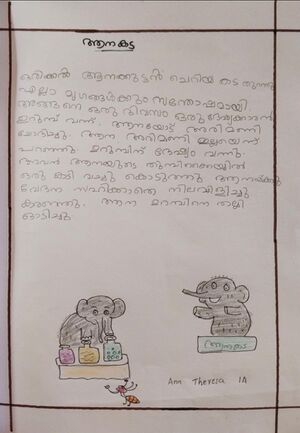 ആനകട
ഒരിക്കൽ ആനക്കുട്ടൻ ചെറിയ കട തുറന്നു
എല്ലാ മൃഗങ്ങൾക്കും സന്തോഷമായി
അങ്ങനെ ഒരു ദിവസം ഒരു ദേഷ്യക്കാരൻ
ഉറുമ്പ് വന്ന്. ആനയോട് അരിമണി
ചോദിച്ചു. ആന അരിമണി ഇല്ലയെന്ന്
പറഞ്ഞു. ഉറുമ്പിന് ദേഷ്യം വന്നു.
അവൻ ആനയുടെ തുമ്പിക്കൈയിൽ
ഒരു കടി വച്ചു കൊടുത്തു ആനയ്ക്കു
വേദന സഹിക്കാതെ നിലവിളിച്ചു
കരഞ്ഞു. ആന ഉറുമ്പിനെ തല്ലി
ഓടിച്ചു
ആനകട
Ann Theresa 1A